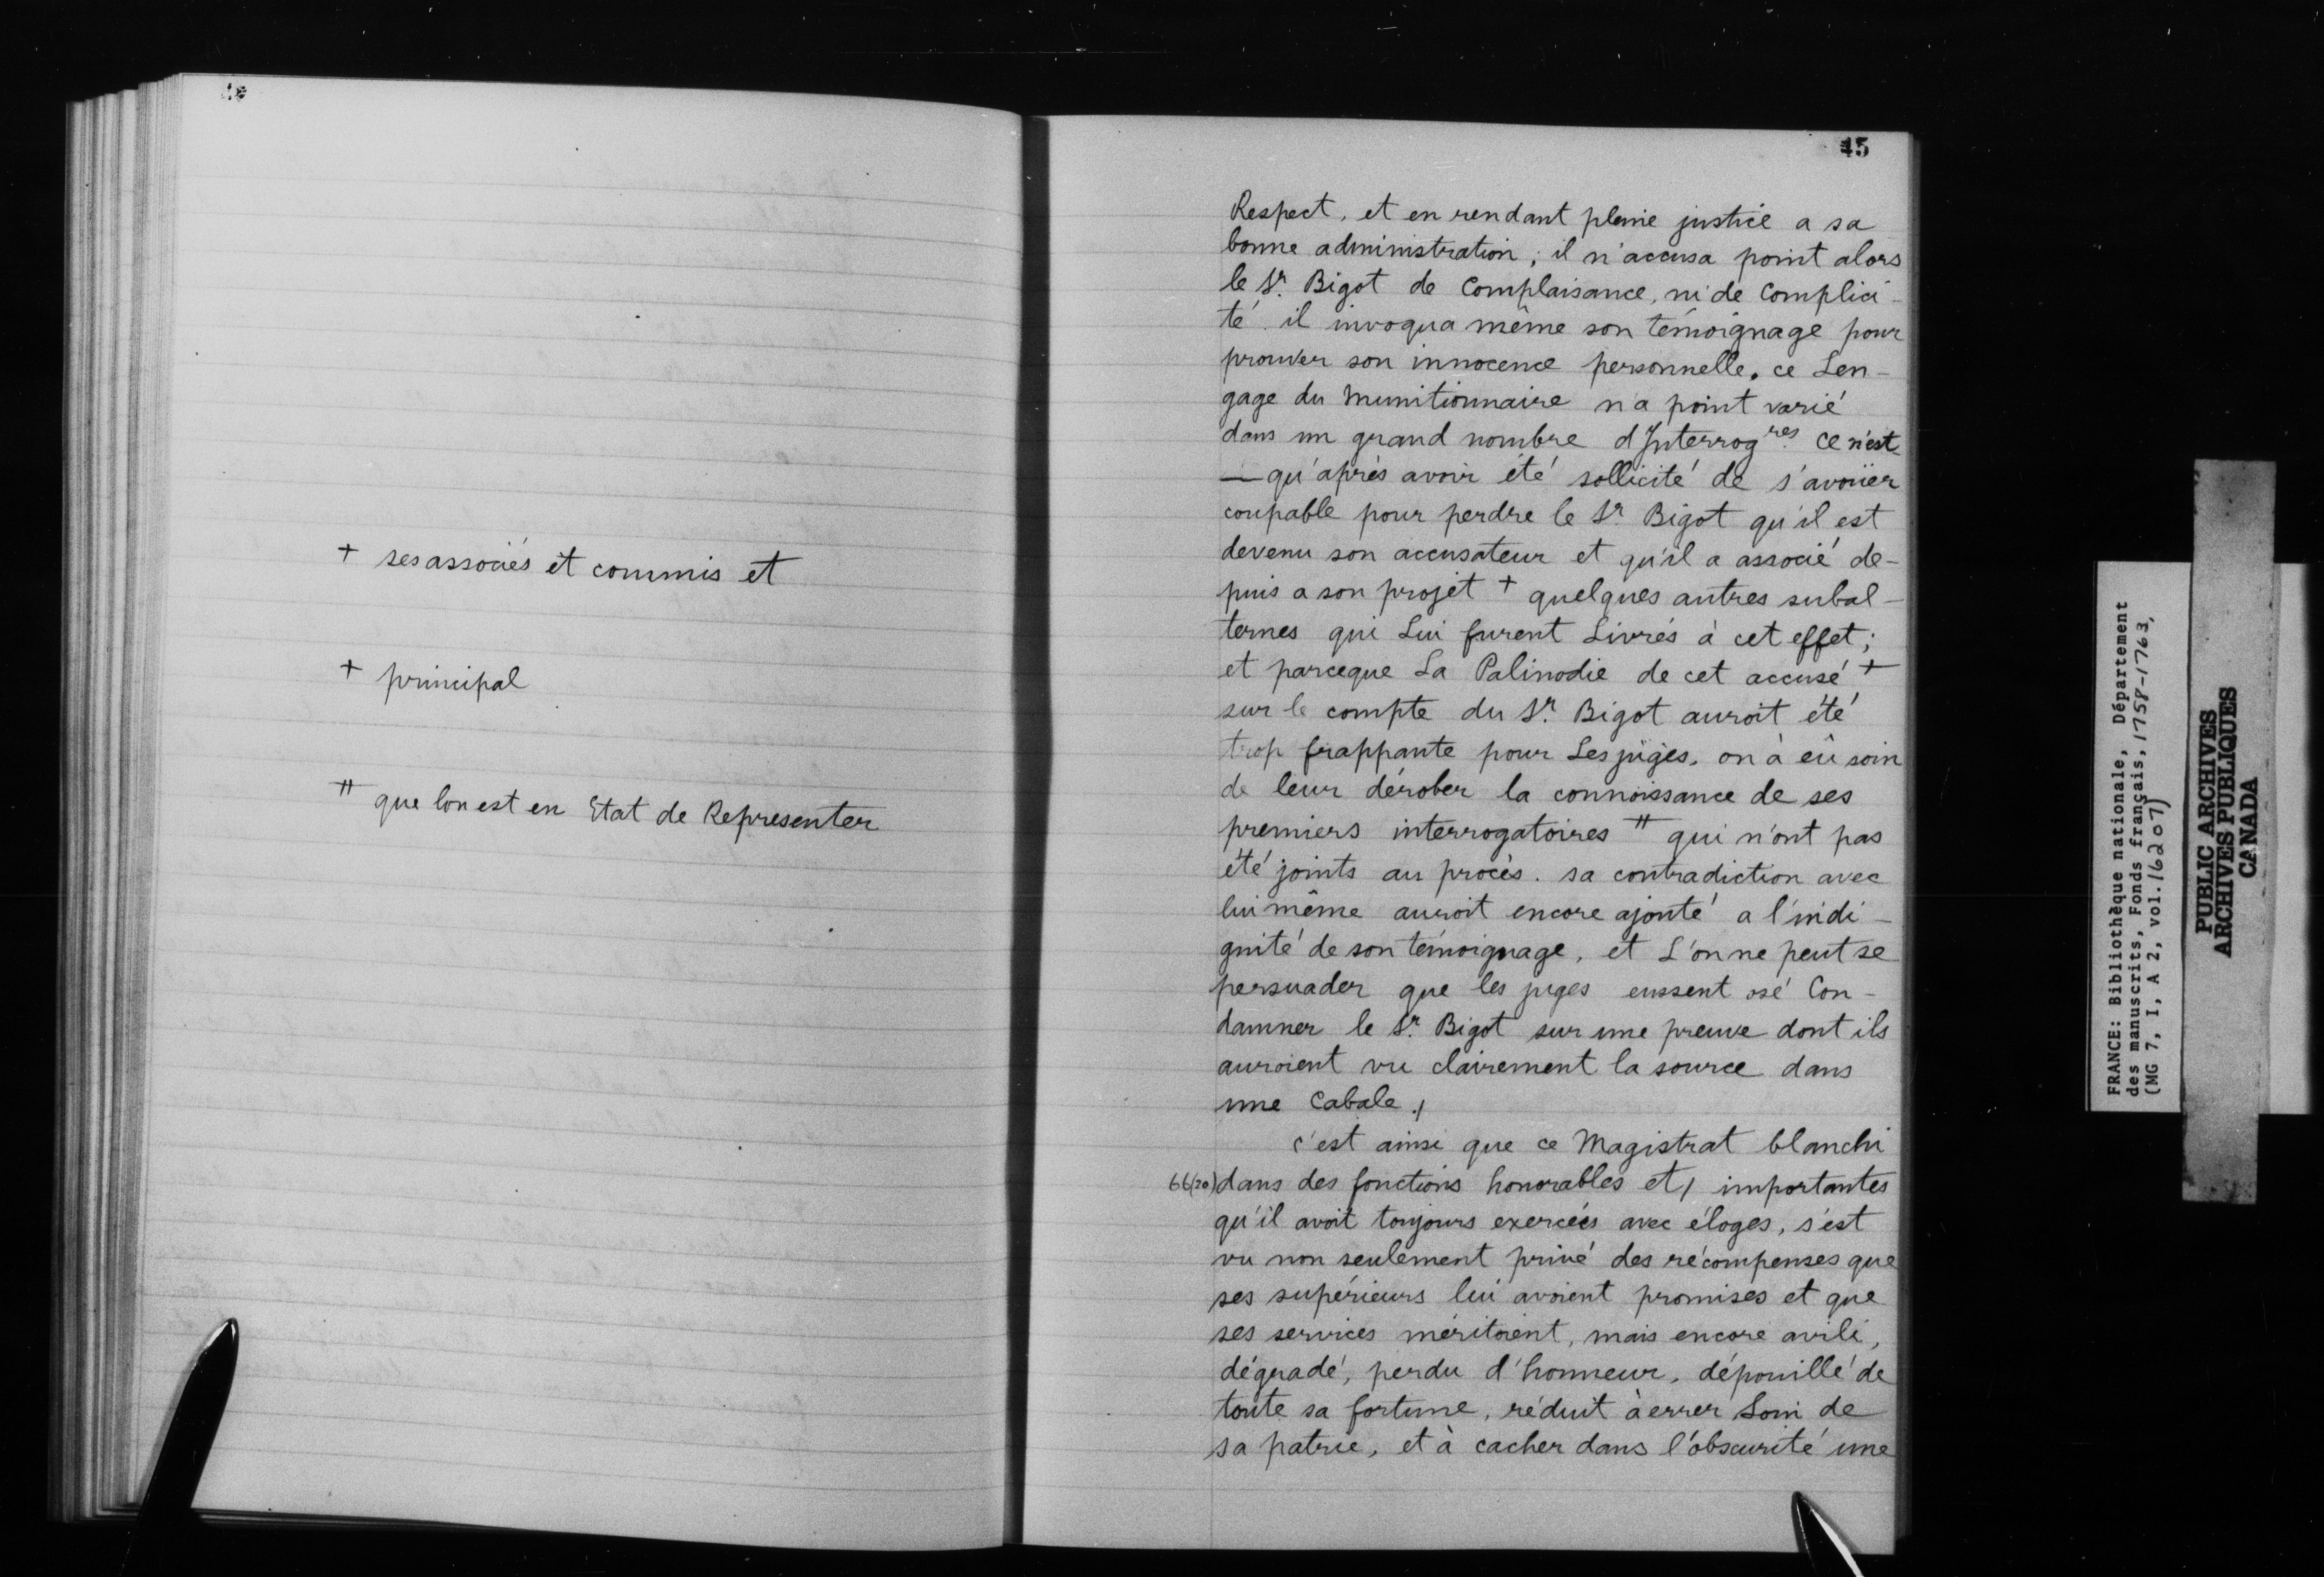 + ses associés et commis et
+ principal
# que lon est en Etat de Representer
45
Respect, et en rendant pleine justice a sa
bonne administration; il n'accusa point alors
le Sr. Bigot de Complaisance, ni de Complici-
té. il invoqua même son témoignage pour
prouver son innocence personnelle. ce Len-
gage du Munitionnaire n'a point varié
dans un grand nombre d'Interrogres. Ce n'est
— qu'après avoir été sollicité de s'avoüer
coupable pour perdre le Sr Bigot qu'il est
devenu son accusateur et qu'il a associé de-
puis a son projet + quelques autres subal-
ternes qui Lui furent Livrés à cet effet;
et parceque La Palinodie de cet accusé +
sur le compte du Sr. Bigot auroit été
trop frappante pour Les juges, on à eû soin
de leur dérober la connoissance de ses
premiers interrogatoires # qui n'ont pas
été joints au procès. sa contradiction avec
lui même auroit encore ajouté a l'indi-
gnité de son témoignage, et L'on ne peut se
persuader que les juges eussent osé Con-
damner le Sr. Bigot sur une preuve dont ils
auroient vu clairement la source dans
une Cabale./
c'est ainsi que ce Magistrat blanchi
66(20) dans des fonctions honorables et/ importantes
qu'il avoit toujours exercées avec éloges, s'est
vu non seulement privé des récompenses que
ses supérieurs lui avoient promises et que
ses services méritoient, mais encore avili,
dégradé, perdu d'honneur, dépouillé de
toute sa fortune, réduit à errer Loin de
sa patrie, et à cacher dans l'obscurité une
FRANCE: Bibliothèque nationale, Département
des manuscrits, Fonds français, 1758-1763,
(MG 7, I, A 2, vol. 16207)
PUBLIC ARCHIVES
ARCHIVES PUBLIQUES
CANADA